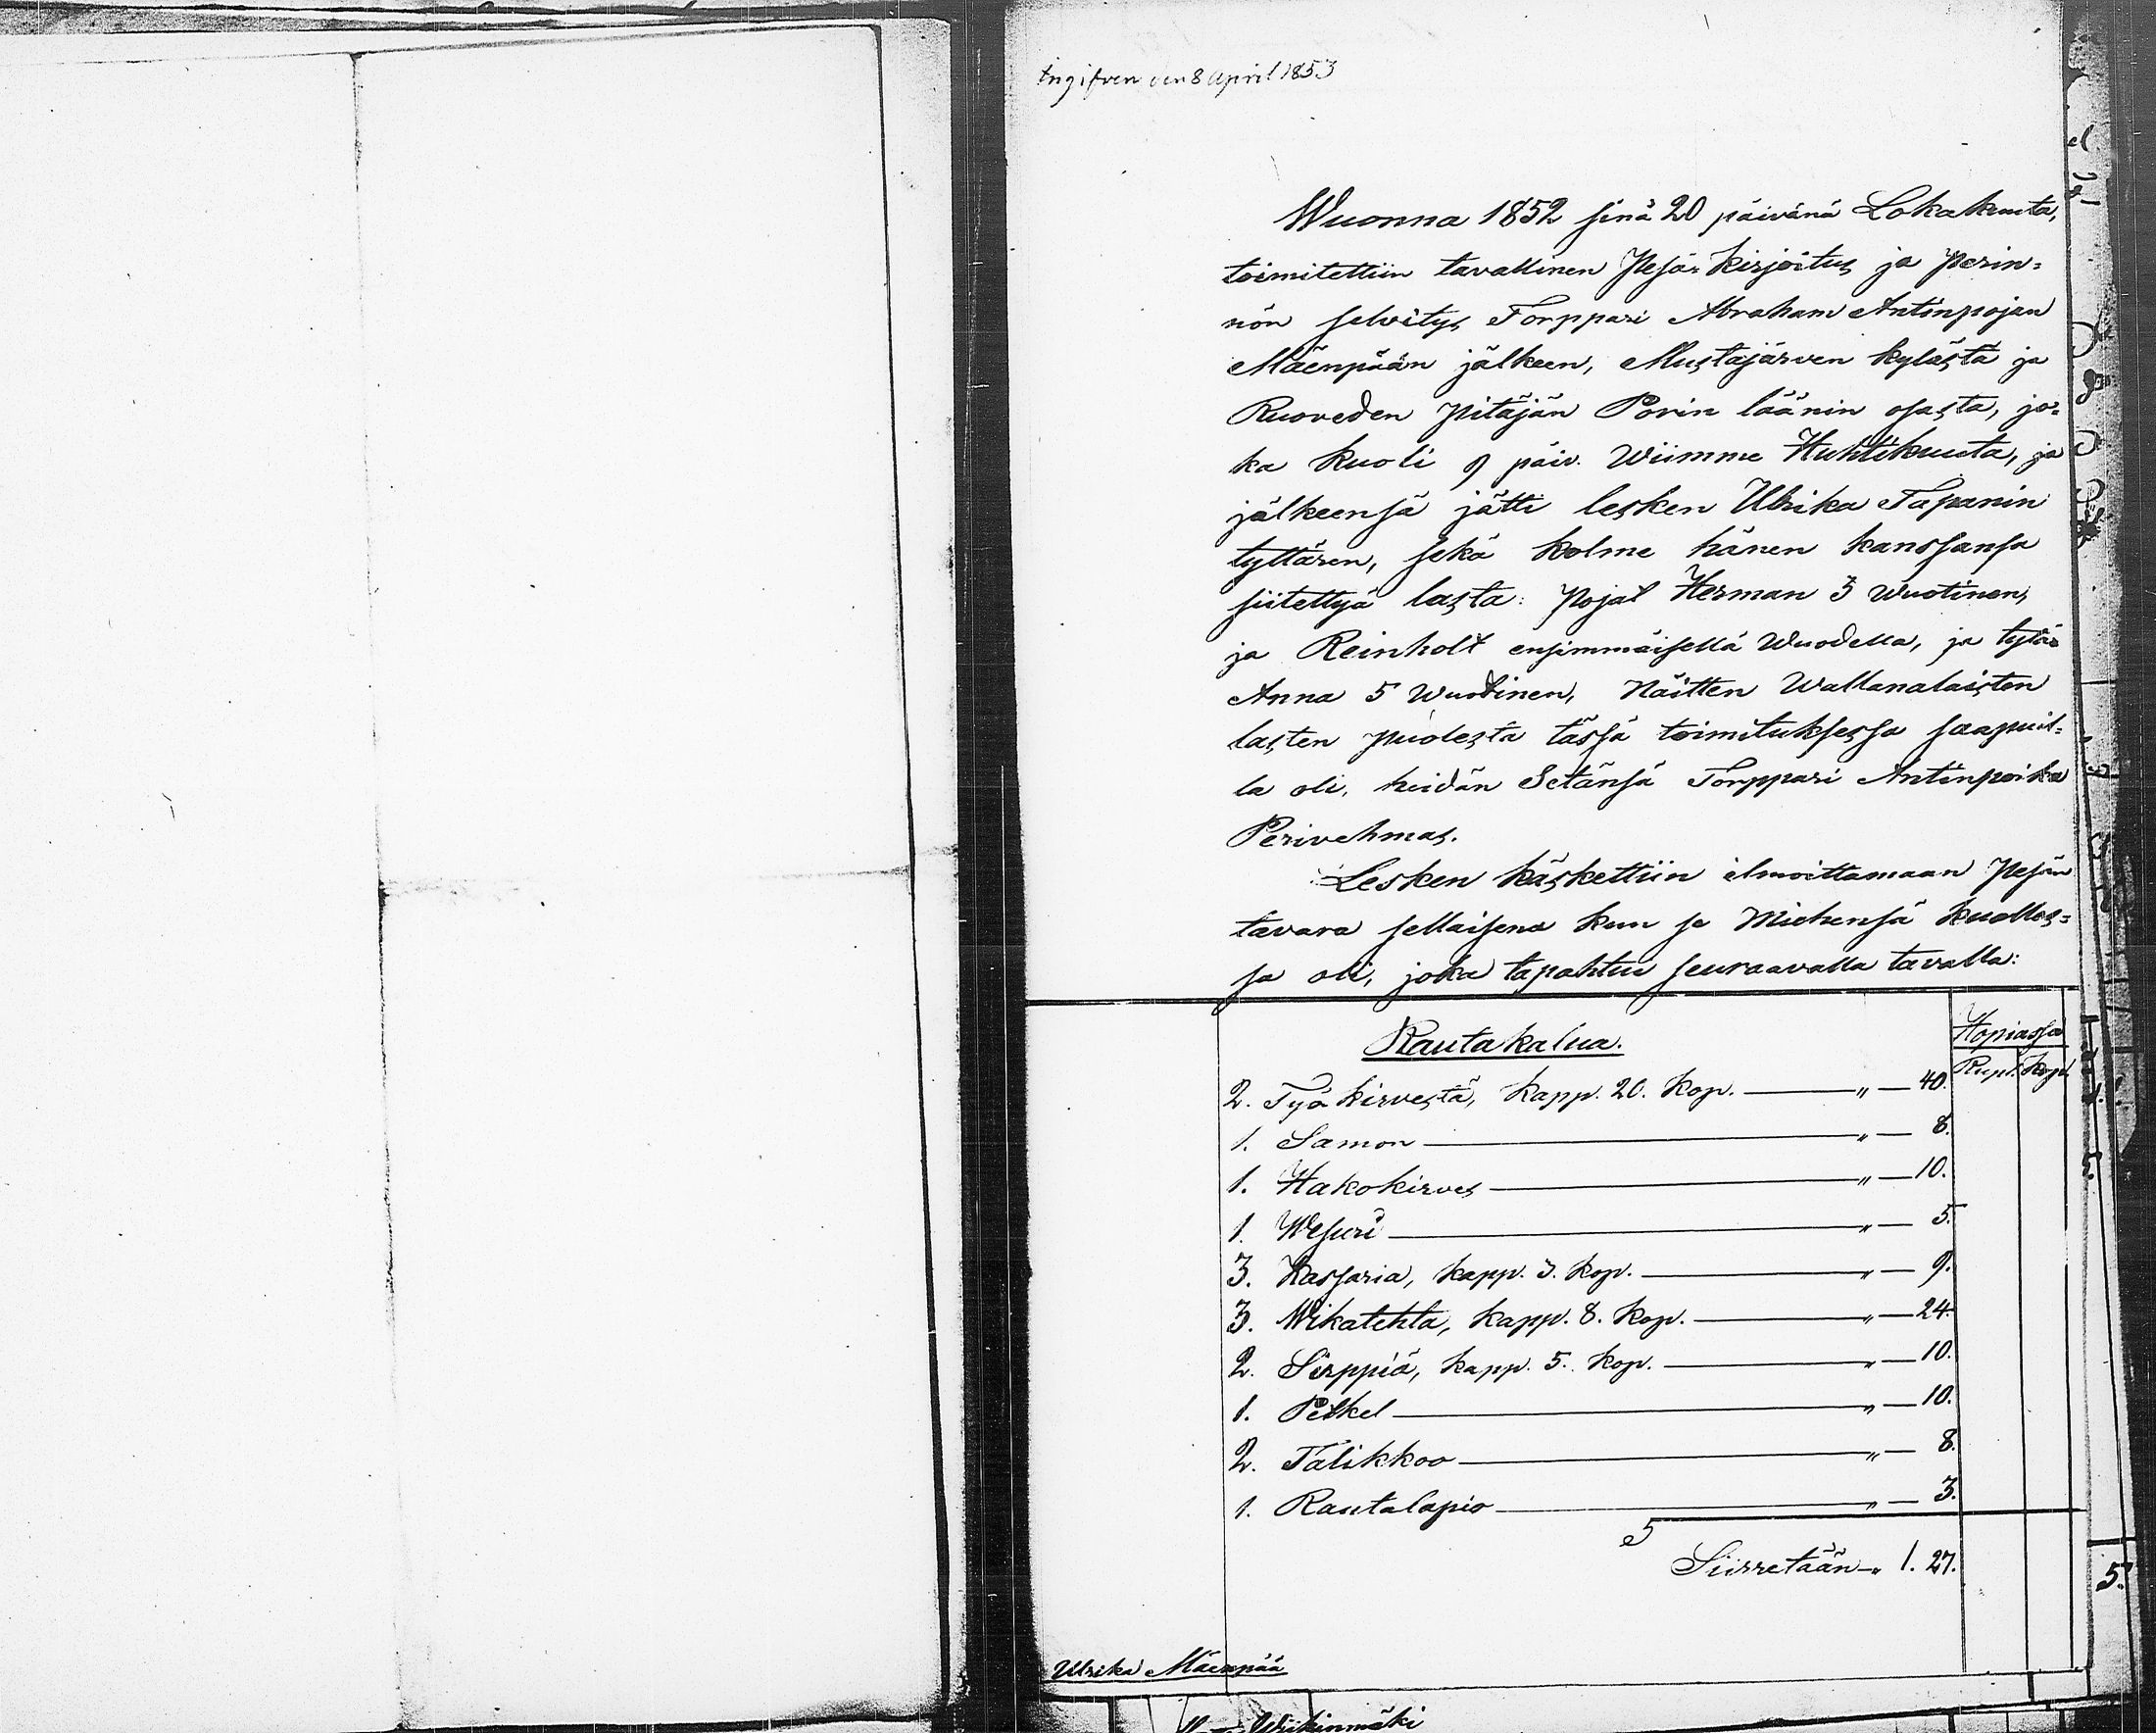 Ingifven den 8 April 1853
Wuonna 1852 sinä 20 päivänä Lokakuuta,
toimitettiin tavallinen Pesä-Kirjoitus ja Perin=
nön selvitys Torppari Abraham Antinpojan
Mäenpään jälkeen, Mustajärven kylästä ja
Ruoveden Pitäjän Porin läänin osasta, jo=
ka Kuoli 9 päiv. Wiimme Huhtikuuta, ja
jälkeensä jätti lesken Ulrika Tapanin
tyttären, sekä Kolme hänen kanssansa
siitettyä lasta: Pojat Herman 3 Wuotinen,
ja Reinholt ensimmäisellä Wuodella, ja tytär
Anna 5 Wuotinen, Näitten Wallanalaisten
lasten puolesta tässä toimituksessa saapuil=
la oli, heidän Setänsä Torppari Antinpoika
Perivehmas.
Lesken käskettiin ilmoittamaan Pesän
tavara sellaisena kun se Miehensä kuolles=
sa oli, joka tapahtui seuraavalla tavalla:
Rautakalua. Hopiassa
Rupl. Kop.
2. Työkirvestä, Kapp. 20. Kop. " 40.
1. Samon " 8.
1. Hakokirves " 10.
1. Wesuri " 5.
3. Kassaria, Kapp. 3. Kop. " 9.
3. Wikatehta, Kapp. 8. Kop. " 24.
2. Sirppiä, Kapp. 5. Kop. " 10.
1. Petkel " 10.
2. Talikkoo " 8.
1. Rautalapio " 3.
Siirretään " 1. 27.
5.
Ulrika Mäenpää
Wiikinmäki